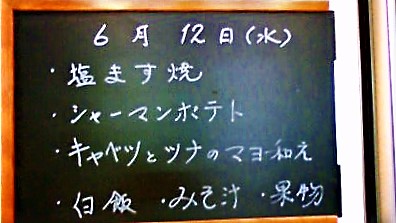 6月12日(水)
・塩ます焼
・シャーマンポテト
・キャベツとツナのマヨ和え
・白飯 ・みそ汁 ・果物